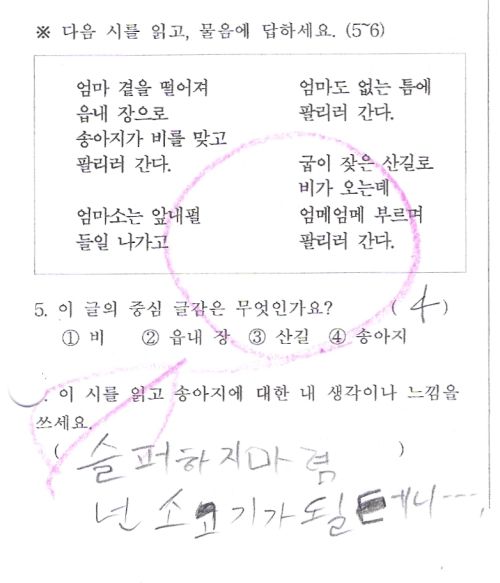 ※ 다음 시를 읽고, 물음에 답하세요. (5~6)
엄마 곁을 떨어져
읍내 장으로
송아지가 비를 맞고
팔리러 간다.
엄마소는 앞내펄
들일 나가고
엄마도 없는 틈에
팔리러 간다.
굽이 잦은 산길로
비가 오는데
엄메엄메 부르며
팔리러 간다.
5. 이 글의 중심 글감은 무엇인가요? ( 4 )
① 비 ② 읍내 장 ③ 산길 ④ 송아지
. 이 시를 읽고 송아지에 대한 내 생각이나 느낌을
쓰세요.
( 슬퍼하지마렴 )
넌 소고기가 될테니---,